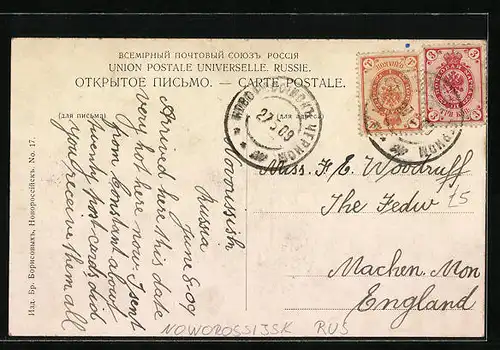 ВСЕМІРНЫЙ ПОЧТОВЫЙ СОЮЗЪ РОССІЯ
UNION POSTALE UNIVERSELLE. RUSSIE.
ОТКРЫТОЕ ПИСЬМО. — CARTE POSTALE.
(для письма)
(для адреса)
27 5 09
Novorussish
Russia
June 8-09
Arrived here this date
very hot here now. I sent
from Constant about
twenty post cards did
you receive them all
Miss. F. E. Woodruff
The Fedw
75
Machen. Mon
England
Изд. Бр. Борисовыхъ, Новороссейскъ. No. 17.
NOWOROSSIJSK RUS